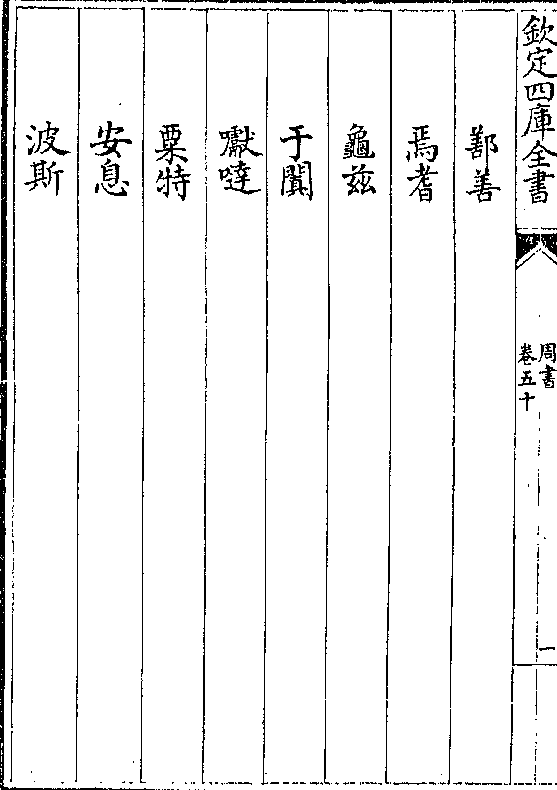 欽定四庫全書
周書
卷五十
一
鄯善
焉耆
龜兹
于闐
囐噠
粟特
安息
波斯